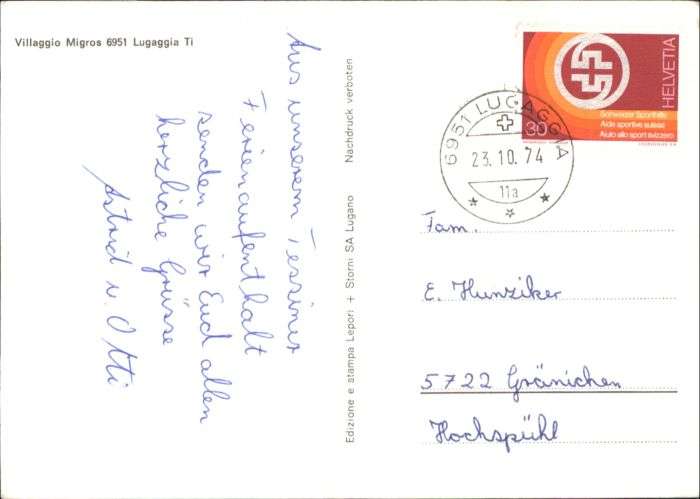 Villaggio Migros 6951 Lugaggia Ti
Aus unserem Tessiner
Ferienaufenthalt
senden wir Euch allen
herzliche Grüsse
Astrid u. Otti
Edizione e stampa Lepori + Storni SA Lugano Nachdruck verboten
HELVETIA
Schweizer Sporthilfe
Aide sportive suisse
Aiuto allo sport svizzero
30
6951 LUGAGGIA
23.10.74
11a
Fam.
E. Hunziker
5722 Gränichen
Hochspühl